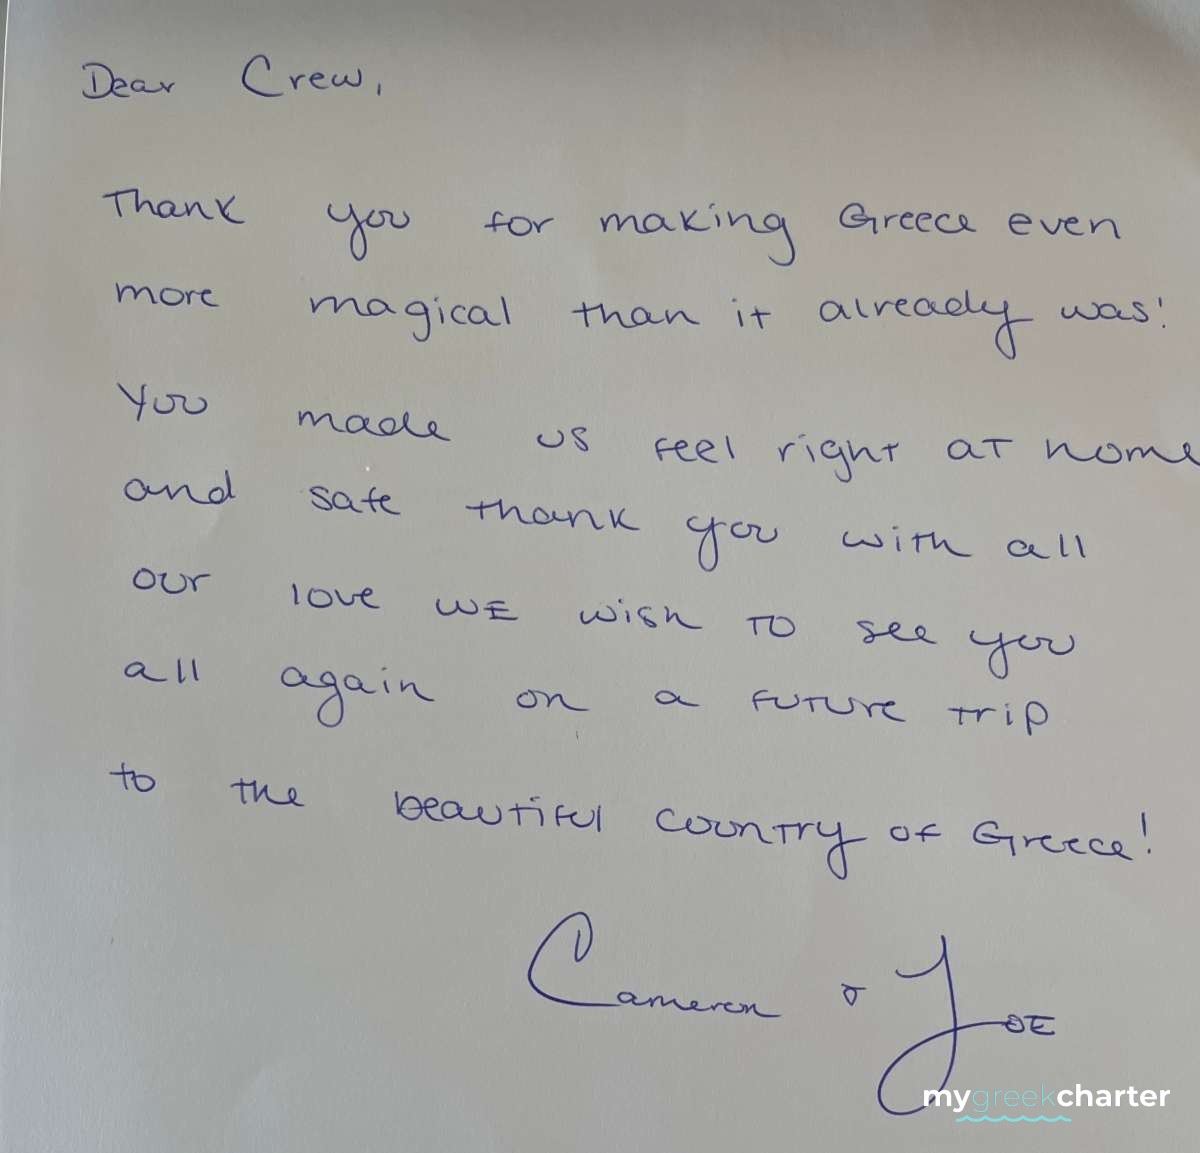 Dear Crew,
Thank you for making Greece even
more magical than it already was!
You made us feel right at home
and safe thank you with all
our love WE wish to see you
all again on a future trip
to the beautiful country of Greece!
Cameron & Joe
mygreekcharter